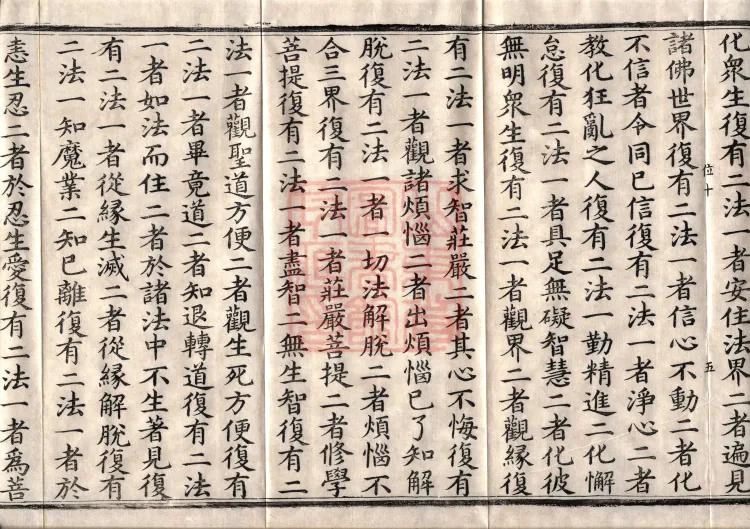 化衆生復有二法一者安住法界二者遍見
諸佛世界復有二法一者信心不動二者化
不信者令同已信復有二法一者淨心二者
教化狂亂之人復有二法一勤精進二化懈
怠復有二法一者具足無礙智慧二者化彼
無明衆生復有二法一者觀界二者觀縁復
有二法一者求智莊嚴二者其心不悔復有
二法一者觀諸煩惱二者出煩惱已了知解
脫復有二法一者一切法解脫二者煩惱不
合三界復有二法一者莊嚴菩提二者修學
菩提復有二法一者盡智二無生智復有二
法一者觀聖道方便二者觀生死方便復有
二法一者畢竟道二者知退轉道復有二法
一者如法而住二者於諸法中不生著見復
有二法一者從縁生滅二者從縁解脫復有
二法一知魔業二知已離復有二法一者於
恚生忍二者於忍生愛復有二法一者爲菩
位十
五